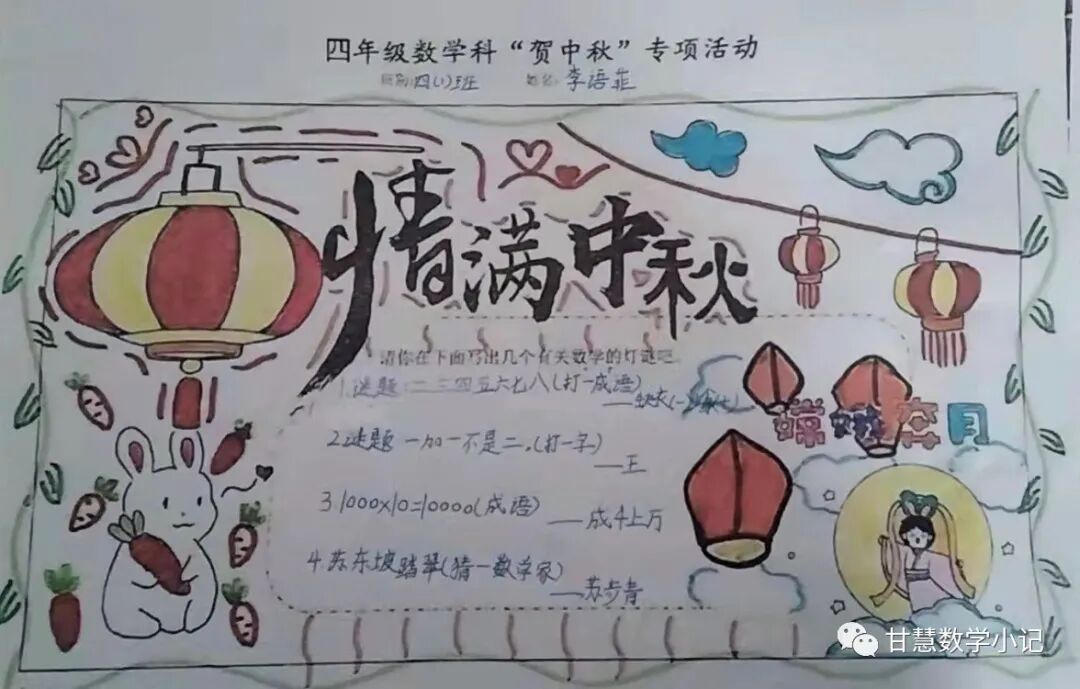 四年级数学科“贺中秋”专项活动
班别:四(1)班 姓名:李语菲
情满中秋
请你在下面写出几个有关数学的灯谜吧
1.谜题:二三四五六七八(打一成语)
——缺衣(一)
2.谜题 一加一不是二.(打一字)
——王
3.1000×10=10000(成语)
——成千上万
4.苏东坡踏翠(猜一数学家)
——苏步青
嫦娥在月
甘慧数学小记